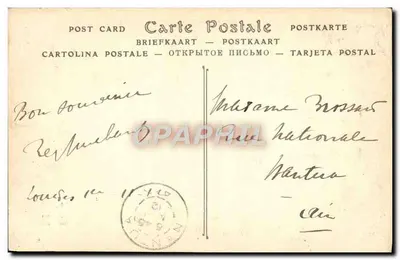 POST CARD Carte Postale POSTKARTE
BRIEFKAART — POSTKAART
CARTOLINA POSTALE — ОТКРЫТОЕ ПИСЬМО — TARJETA POSTAL
Bon souvenir
Madame Brossard
Rue Nationale
Nantua
Ain
CPAPHIL
NANTUA